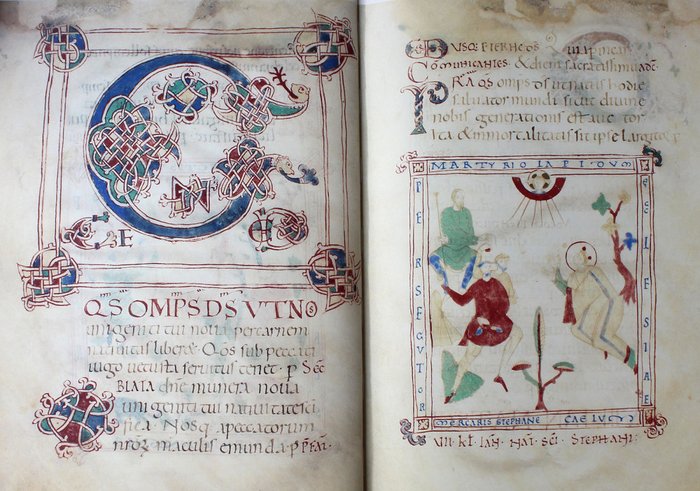 CE
QS OMPS DS UT NOS
unigeniti tui nova per carnem
nativitas liberet. Quos sub peccati
iugo vetusta servitus tenet. p
OBLATA dne munera nova
unigeniti tui nativitate sci
fica. Nosq a peccatorum
nrorum maculis emunda. p
COMMUNICANTES & diem sacratissimum
PRAESTA QS omps ds ut natus hodie
salvator mundi sicut divine
nobis generationis est auctor
ita & inmortalitatis sit ipse largitor
MARTYRIO LAPIDUM
PERSEGUTOR
ECLESIAE
MERCARIS STEPHANE CAELUM
VIII KL IAN NAT SCI STEPHANI